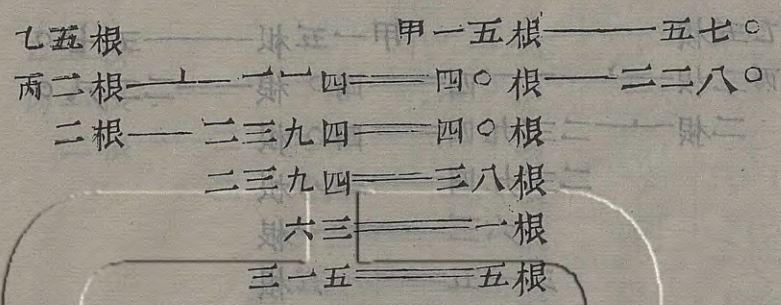 乙五根 甲一五根——五七〇
丙二根—⊥—一一四══四〇根——二二八〇
二根——二三九四══四〇根
二三九四══三八根
六三══一根
三一五══五根